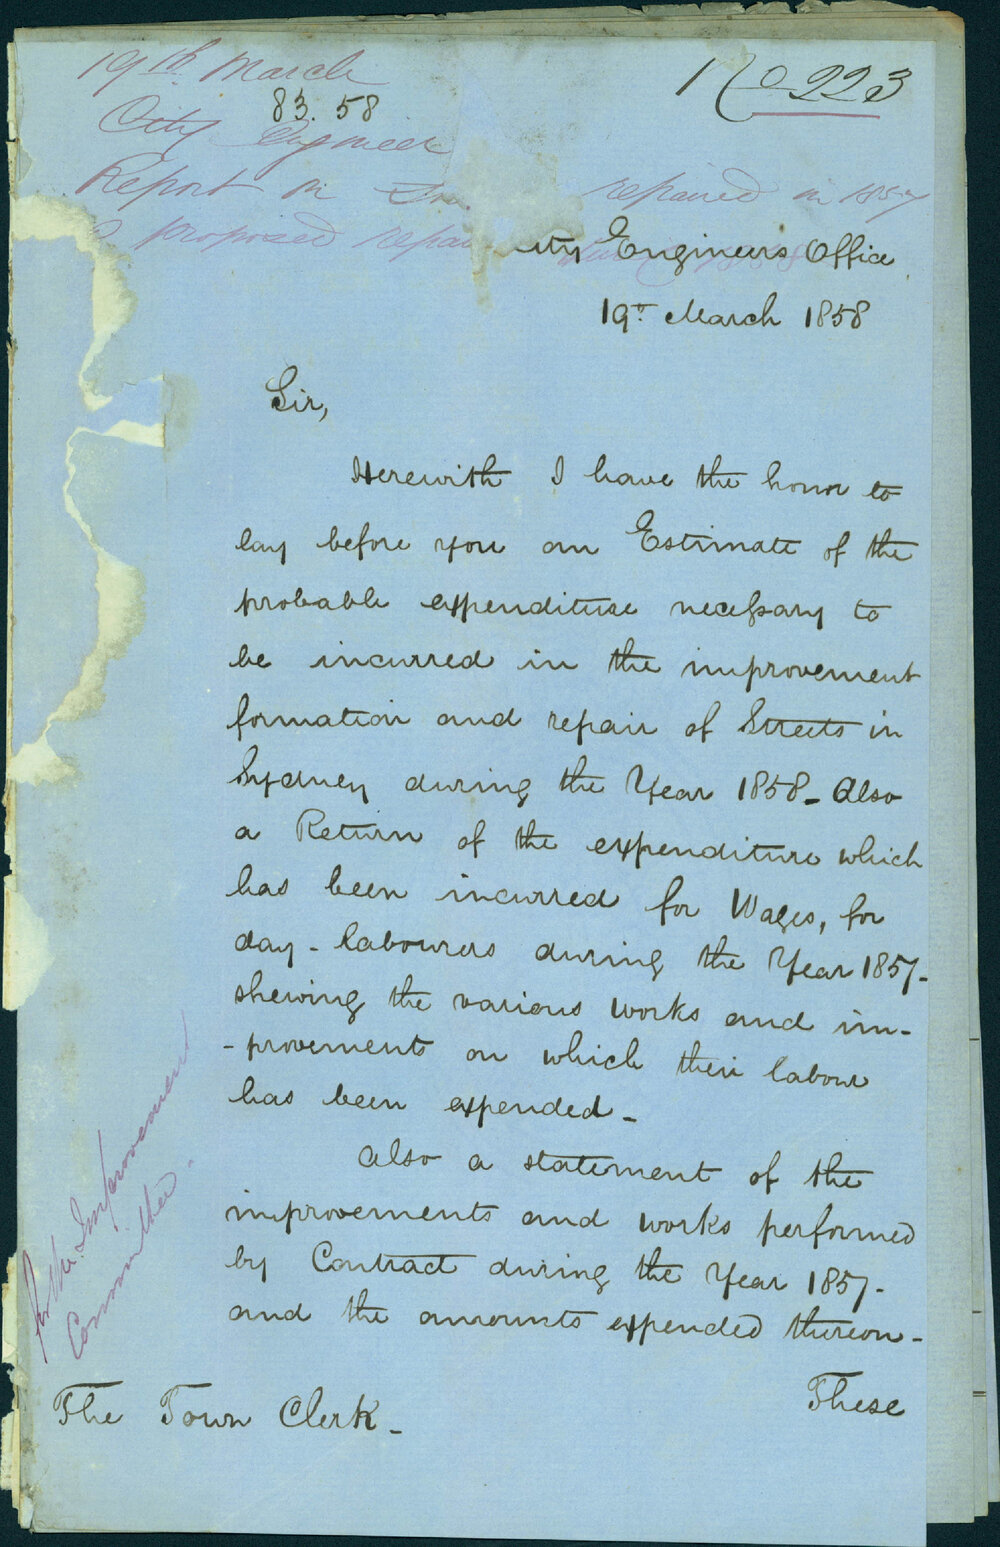 19th March
No 223
83.58
City Engineer
Report on repaired in 1857
proposed
City Engineers Office
19th March 1858
Sir,
Herewith I have the honor to
lay before you an Estimate of the
probable expenditure necessary to
be incurred in the improvement
formation and repair of Streets in
Sydney during the Year 1858 - Also
a Return of the expenditure which
has been incurred for Wages, for
day - labourers during the Year 1857 -
shewing the various works and im-
- provements on which their labour
has been expended -
Also a statement of the
improvements and works performed
by Contract during the Year 1857 -
and the amounts expended thereon -
These
The Town Clerk -
for the Improvement
Committee.